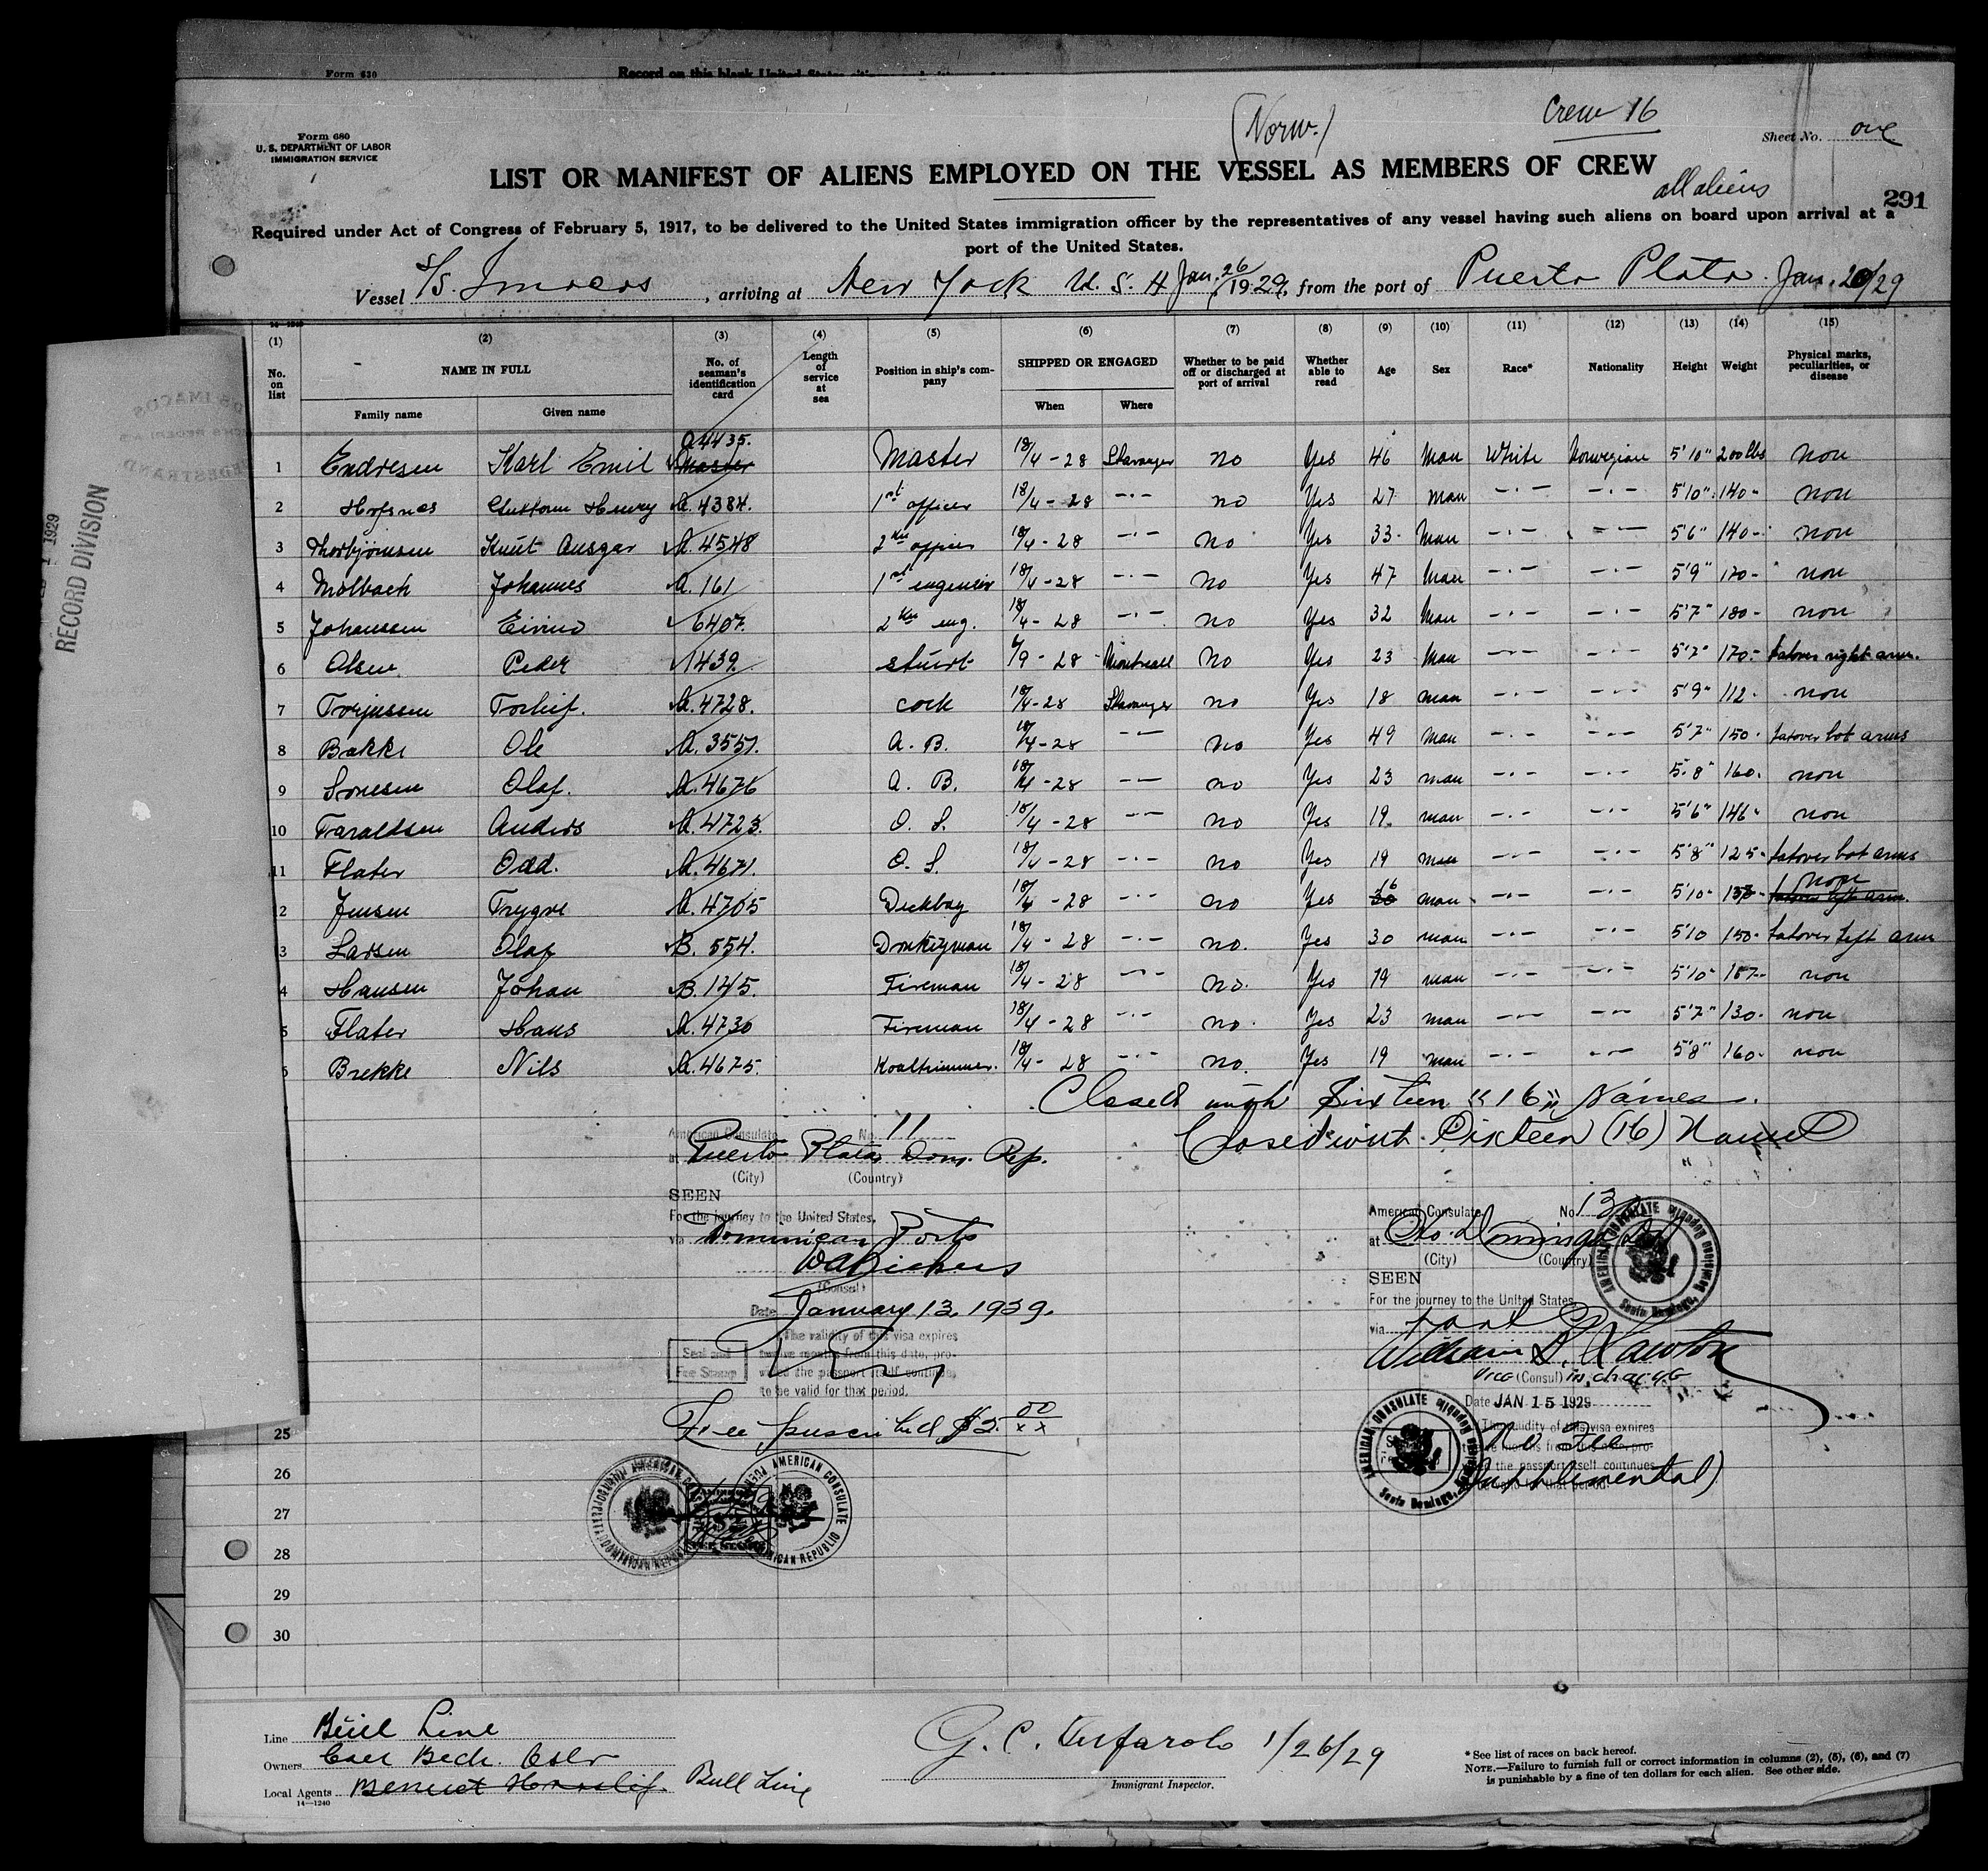 Form 630
Record on this blank United States
(Norw.)
Crew 16
Form 680
U. S. DEPARTMENT OF LABOR
IMMIGRATION SERVICE
Sheet No. one
LIST OR MANIFEST OF ALIENS EMPLOYED ON THE VESSEL AS MEMBERS OF CREW
all aliens
291
Required under Act of Congress of February 5, 1917, to be delivered to the United States immigration officer by the representatives of any vessel having such aliens on board upon arrival at a
port of the United States.
Vessel S/S. Imacos, arriving at New York U. S. A Jan. 26 1929, from the port of Puerto Plata. Jan. 20/29
(1) (2) (3) (4) (5) (6) (7) (8) (9) (10) (11) (12) (13) (14) (15)
No. on list NAME IN FULL No. of seaman's identification card Length of service at sea Position in ship's company SHIPPED OR ENGAGED Whether to be paid off or discharged at port of arrival Whether able to read Age Sex Race* Nationality Height Weight Physical marks, peculiarities, or disease
Family name Given name When Where
1 Endresen Karl Emil A4435. Master Master 18/4-28 Stavanger no Yes 46 Man White Norwegian 5'10" 200lbs non
2 Henry A. 4384. 1st officer 18/4-28 -.- no Yes 27 man -.- -.- 5'10" 140- non
3 Thorbjørnsen Knut Ansgar A. 4548 2 officer 18/4-28 -.- no Yes 33 Man -.- -.- 5'6" 140- non
4 Molbach Johannes A. 161 1st 18/4-28 -.- no Yes 47 Man -.- -.- 5'9" 170- non
5 Johanssen 6407. 2 eng. 18/4-28 -.- no Yes 32 Man -.- -.- 5'7" 180- non
6 Olsen Peder 1439 9-28 Montreall no Yes 23 Man -.- -.- 5'7" 170- tatover right arm.
7 Torjussen A. 4728. cock 18/4-28 Stavanger no Yes 18 man -.- -.- 5'9" 112- non
8 Bakke Ole A. 3551. A. B. 18/4-28 -.- no Yes 49 man -.- -.- 5'7" 150- tatover bot arms
9 Olaf. A. 4676 A. B. 18/4-28 -.- no Yes 23 man -.- -.- 5'8" 160. non
10 Taraldsen Anders A. 4723. O. S. 18/4-28 -.- no Yes 19 man -.- -.- 5'6" 146- non
11 Flater Odd. A. 4671. O. S. 18/4-28 -.- no Yes 19 man -.- -.- 5'8" 125- tatover bot arms
2 Jensen Trygve A. 4705 Deckboy 18/4-28 -.- no Yes 16 man -.- -.- 5'10- none
3 Larsen Olaf B. 554. Donkeyman 18/4-28 -.- no. Yes 30 man -.- -.- 5'10 150- tatover left arm
4 Hansen Johan B. 145. Fireman 18/4-28 -.- no. Yes 19 man -.- -.- 5'10- non
5 Flater Hans A. 4730 Fireman 18/4-28 -.- no. Yes 23 man -.- -.- 5'7" 130- non
6 Brekke Nils A. 4675. Koaltrimmer. 18/4-28 -.- no. Yes 19 man -.- -.- 5'8" 160- non
Closed with Sixteen "16" Names.
Closed with Sixteen (16) Names
American Consulate No. 11
at Puerto Plata Dom. Rep.
(City) (Country)
SEEN
For the journey to the United States.
via Dominican Ports
(Consul)
Date January 13, 1939.
The validity of this visa expires
twelve months from this date, provided the passport itself continues
to be valid for that period.
Seal and
Fee Stamp
Fee prescribed $2.00
American Consulate No 13
at Sto. Domingo
(City) (Country)
SEEN
For the journey to the United States
via
William B. Lawton
Vice (Consul) in charge
Date JAN 15 1929
The validity of this visa expires
the passport itself continues
No Fee
(Supplemental)
AMERICAN CONSULATE
Santo Domingo, Dominican Republic
AMERICAN CONSULATE
Santo Domingo, Dominican Republic
AMERICAN CONSULATE
DOMINICAN REPUBLIC
25
26
27
28
29
30
1929
RECORD DIVISION
Line Bull Line
Owners
Local Agents Bull Line
14—1240
G. C. 1/26/29
Immigrant Inspector.
* See list of races on back hereof.
NOTE.—Failure to furnish full or correct information in columns (2), (5), (6), and (7)
is punishable by a fine of ten dollars for each alien. See other side.